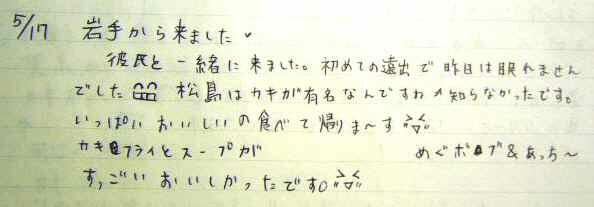 5/17 岩手から来ました♥
彼氏と一緒に来ました。初めての遠出で昨日は眠れません
でした 松島はカキが有名なんですね 知らなかったです。
いっぱい おいしいの食べて帰りま〜す
カキフライとスープが めぐボブ&あっち〜
すっごい おいしかったです。